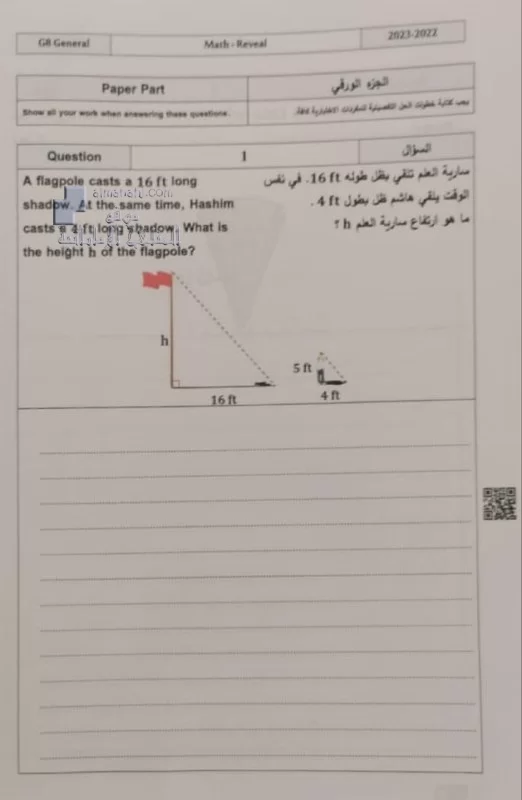 G8 General
Math - Reveal
2023-2022
Paper Part
الجزء الورقي
Show all your work when answering these questions.
يجب كتابة خطوات الحل التفصيلية للمفردات الاختبارية كافة.
Question
1
السؤال
A flagpole casts a 16 ft long
shadow. At the same time, Hashim
casts a 4 ft long shadow. What is
the height h of the flagpole?
سارية العلم تلقي بظل طوله 16 ft. في نفس
الوقت يلقي هاشم ظل بطول 4 ft .
ما هو ارتفاع سارية العلم h ؟
almanahj.com
موقع
المناهج الإماراتية
h
16 ft
5 ft
4 ft